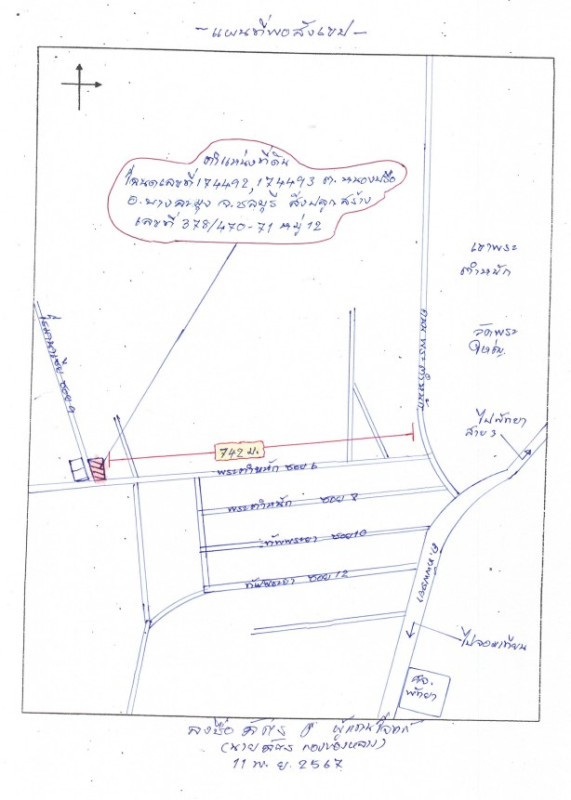 - แผนที่พอสังเขป -
ตำแหน่งที่ดิน
โฉนดเลขที่ 174492, 174493 ต. หนองปรือ
อ. บางละมุง จ. ชลบุรี สิ่งปลูกสร้าง
เลขที่ 378/470-71 หมู่ 12
เขาพระ
ตำหนัก
วัดพระ
ใหญ่
ถนน พระตำหนัก
ซอย 9
ไปพัทยา
สาย 3
742 ม.
พระตำหนัก ซอย 6
พระตำหนัก ซอย 8
ทัพพระยา ซอย 10
ทัพพระยา ซอย 12
ถ.ทัพพระยา
ไปจอมเทียน
ศจ.
พัทยา
ลงชื่อ ผู้แทนโจทก์
11 พ.ย. 2567